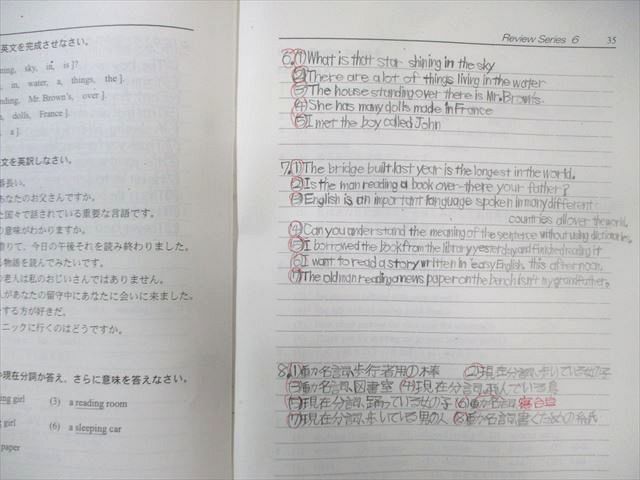 英文を完成させなさい。
ning, sky, in, is]?
, in, water, a, things, the].
nding, Mr. Brown's, over].
n, dolls, France].
a].
文を英訳しなさい。
番長い。
あなたのお父さんですか。
な国々で話されている重要な言語です。
の意味がわかりますか。
借りて、今日の午後それを読み終わりました。
物語を読んでみたいです。
老人は私のおじいさんではありません。
があなたの留守中にあなたに会いに来ました。
をする方が好きだ。
ニックに行くのはどうですか。
現在分詞か答え、さらに意味を答えなさい。
ing girl (3) a reading room
ng girl (6) a sleeping car
paper
Review Series 6 35
6.(1)What is that star shining in the sky
(2)There are a lot of things living in the water
(3)The house standing over there is Mr. Brown's.
(4)She has many dolls made in France
(5)I met the boy called John
7.(1)The bridge built last year is the longest in the world.
(2)Is the man reading a book over there your father?
(3)English is an important language spoken in many different
countries all over the world.
(4)Can you understand the meaning of the sentence without using dictionaries.
(5)I borrowed the book from the library yesterday and finished reading it
(6)I want to read a story written in easy English. this afternoon.
(7)The old man reading a news paper on the bench isn't my grandfather.
8.(1)動名詞、歩行者用の棒 (2)現在分詞、歩いている女の子
(3)動名詞、図書室 (4)現在分詞、飛んでいる鳥
(5)現在分詞、踊っている女の子 (6)動名詞、寝台車
(7)現在分詞、歩いている男の人 (8)動名詞、書くための紙